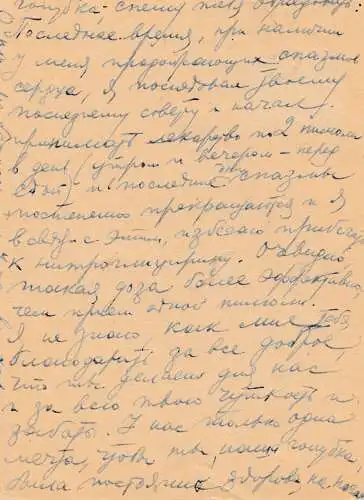 голубка, спешу тебя обрадовать:
Последнее время, при наличии
у меня продолжающихся спазм
сердца, я последовал твоему
последнему совету и начал
принимать лекарство по 2 пилюли
в день (утром и вечером – перед
едой) и последние дни спазмы
постепенно прекращаются и я
в связи с этим, избегаю прибегать
к нитроглицерину. Очевидно
такая доза более эффективна
чем прием одной пилюли.
Я не знаю как мне тебя
благодарить за все доброе,
что ты делаешь для нас
и за всю твою чуткость и
заботь. У нас только одна
мечта, чтобы ты, наша голубка
была постоянно здорова